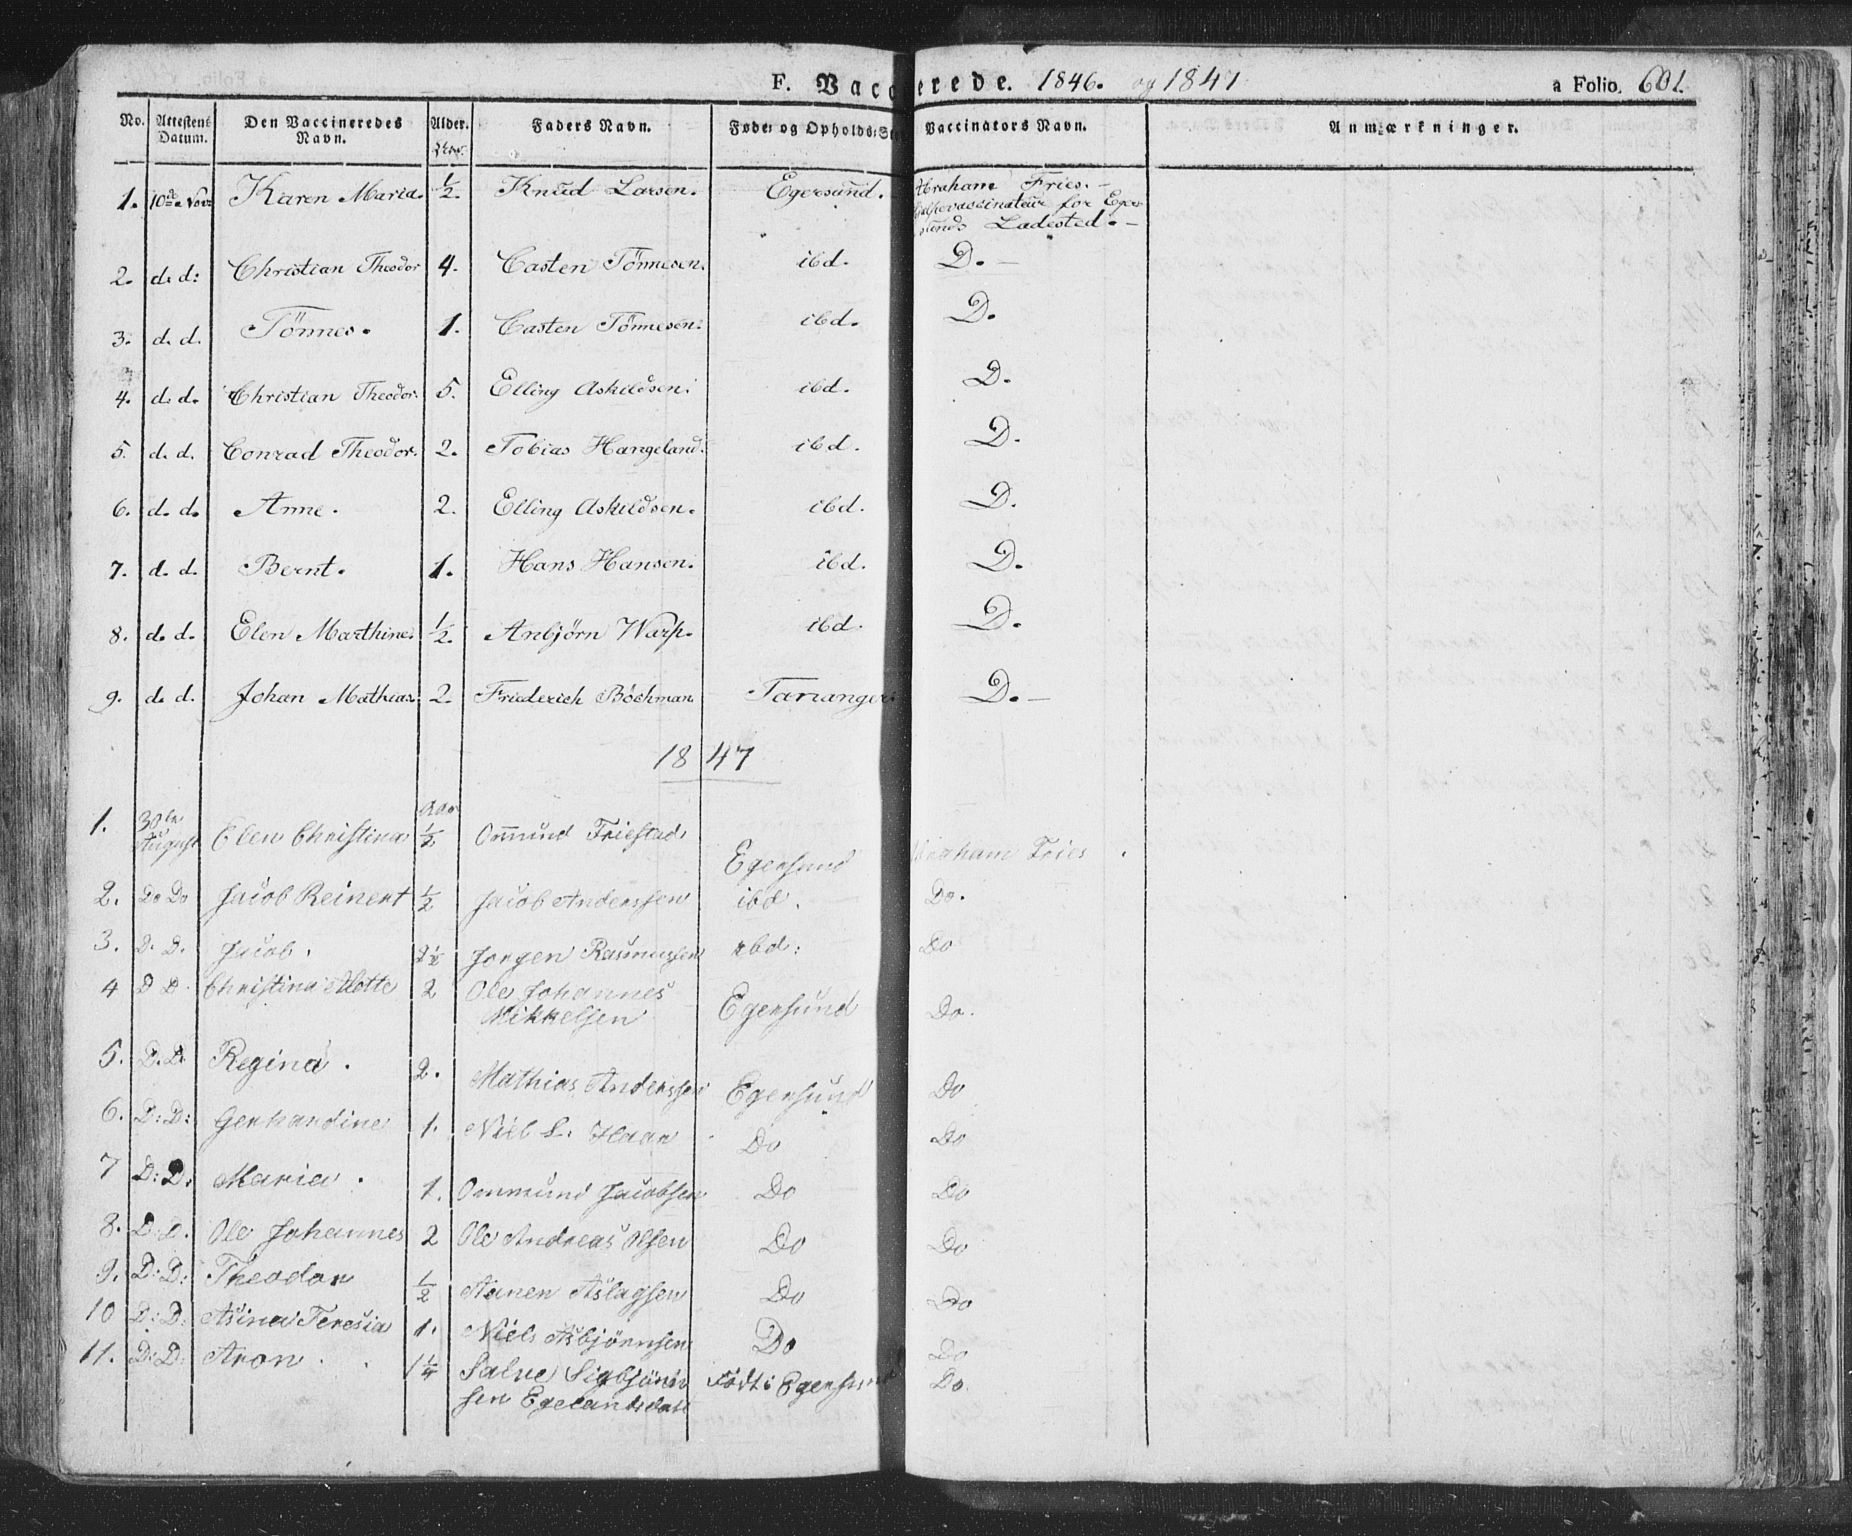 F. Vaccinerede. 1846. og 1847 a Folio. 601.
No. Attestens Datum. Den Vaccineredes Navn. Alder. Faders Navn. Føde- og Opholds-Sted Vaccinators Navn. Anmærkninger.
1. 10de Novr Karen Maria. ½. Knud Larsen. Egersund. Abraham Fries.-
Hjelpevassinateur for Eger
sunds Ladested.-
2. d. d: Christian Theodor 4. Casten Tönnesen. ibd. D.-
3. d. d. Tönnes. 1. Casten Tönnesen. ibd. D.
4. d. d. Christian Theodor. 5. Elling Askildsen. ibd. D.
5. d. d. Conrad Theodor. 2. Tobias Hangeland. ibd. D.
6. d. d. Anne. 2. Elling Askildsen. ibd. D.
7. d. d. Bernt. 1. Hans Hansen. ibd. D.
8. d. d. Elen Marthine. ½. Anbjörn Warp. ibd. D.
9. d. d. Johan Mathias. 2. Friederich Böchman Tananger. D.-
1847
1. 30te August Elen Christina Aar ½ Ommund Friestad Egersund Abraham Fries
2. Do Do Jacob Reinert ½ Jacob Anderssen ibd. Do.
3. D. D. Jacob. 2½ Jorgen Rasmussen ibd: Do
4 D D. Christina Mette 2 Ole Johannes
Mikkelsen Egersund Do.
5. D. D. Regina. 2. Mathias Anderssen Egersund Do
6. D: D: Gerhardine 1. Niels L. Haar Do Do
7 D: D. Maria. 1. Ommund Jacobsen Do Do
8. D: D. Ole Johannes 2 Ole Andreas Olsen Do Do
9. D: D: Theodor ½ Aanen Aslagsen Do Do
10 D: D: Asina Teresia 1. Niels Asbjörnsen Do Do
11. D: D: Aron. 1¼ Salve Sigbjörn
sen Egelandsdal Födt i Egersund Do.